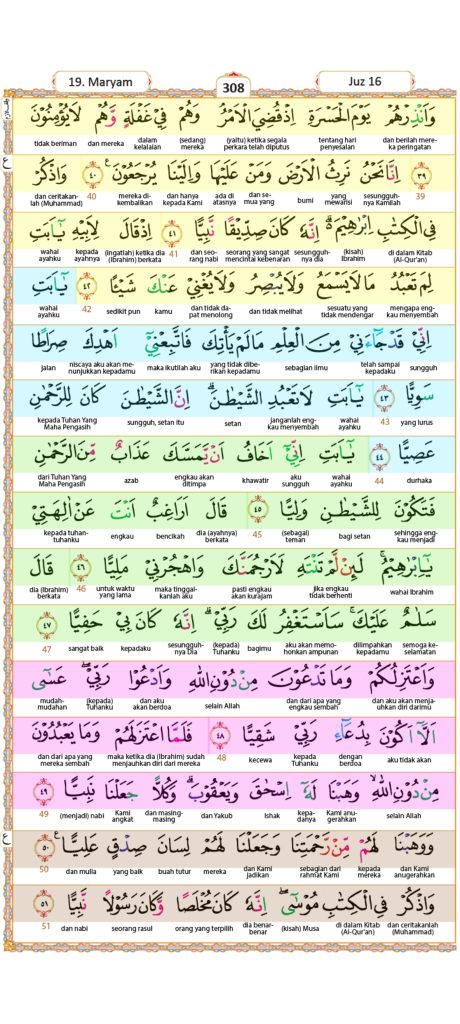 19. Maryam
308
Juz 16
وَاَنْذِرْهُمْ يَوْمَ الْحَسْرَةِ اِذْ قُضِيَ الْاَمْرُۘ وَهُمْ فِيْ غَفْلَةٍ وَّهُمْ لَا يُؤْمِنُوْنَ
dan berilah mereka peringatan tentang hari penyesalan (yaitu) ketika segala perkara telah diputus (sedang) mereka dalam kelalaian dan mereka tidak beriman
٣٩ اِنَّا نَحْنُ نَرِثُ الْاَرْضَ وَمَنْ عَلَيْهَا وَاِلَيْنَا يُرْجَعُوْنَ ࣖ ٤٠ وَاذْكُرْ
39 sesungguhnya Kamilah yang mewarisi bumi dan semua yang ada di atasnya dan hanya kepada Kami mereka dikembalikan 40 dan ceritakanlah (Muhammad)
فِى الْكِتٰبِ اِبْرٰهِيْمَ ەۗ اِنَّهٗ كَانَ صِدِّيْقًا نَّبِيًّا ٤١ اِذْ قَالَ لِاَبِيْهِ يٰٓاَبَتِ
di dalam Kitab (Al-Qur'an) (kisah) Ibrahim sesungguhnya dia seorang yang sangat mencintai kebenaran dan seorang nabi 41 (ingatlah) ketika dia (Ibrahim) berkata kepada ayahnya wahai ayahku
لِمَ تَعْبُدُ مَا لَا يَسْمَعُ وَلَا يُبْصِرُ وَلَا يُغْنِيْ عَنْكَ شَيْـًٔا ٤٢ يٰٓاَبَتِ
mengapa engkau menyembah sesuatu yang tidak mendengar dan tidak melihat dan tidak dapat menolong kamu sedikit pun 42 wahai ayahku
اِنِّيْ قَدْ جَاۤءَنِيْ مِنَ الْعِلْمِ مَا لَمْ يَأْتِكَ فَاتَّبِعْنِيْٓ اَهْدِكَ صِرَاطًا
sungguh telah sampai kepadaku sebagian ilmu yang tidak diberikan kepadamu maka ikutilah aku niscaya aku akan menunjukkan kepadamu jalan
سَوِيًّا ٤٣ يٰٓاَبَتِ لَا تَعْبُدِ الشَّيْطٰنَۗ اِنَّ الشَّيْطٰنَ كَانَ لِلرَّحْمٰنِ
yang lurus 43 wahai ayahku janganlah engkau menyembah setan sungguh, setan itu kepada Tuhan Yang Maha Pengasih
عَصِيًّا ٤٤ يٰٓاَبَتِ اِنِّيْٓ اَخَافُ اَنْ يَّمَسَّكَ عَذَابٌ مِّنَ الرَّحْمٰنِ
durhaka 44 wahai ayahku aku sungguh khawatir engkau akan ditimpa azab dari Tuhan Yang Maha Pengasih
فَتَكُوْنَ لِلشَّيْطٰنِ وَلِيًّا ٤٥ قَالَ اَرَاغِبٌ اَنْتَ عَنْ اٰلِهَتِيْ
sehingga engkau menjadi bagi setan (sebagai) teman 45 dia (ayahnya) berkata bencikah engkau kepada tuhan-tuhanku
يٰٓاِبْرٰهِيْمُۚ لَىِٕنْ لَّمْ تَنْتَهِ لَاَرْجُمَنَّكَ وَاهْجُرْنِيْ مَلِيًّا ٤٦ قَالَ
wahai Ibrahim jika engkau tidak berhenti pasti engkau akan kurajam maka tinggalkanlah aku untuk waktu yang lama 46 dia (Ibrahim) berkata
سَلٰمٌ عَلَيْكَۚ سَاَسْتَغْفِرُ لَكَ رَبِّيْۗ اِنَّهٗ كَانَ بِيْ حَفِيًّا ٤٧
semoga keselamatan dilimpahkan kepadamu aku akan memohonkan ampunan bagimu (kepada) Tuhanku sesungguhnya Dia kepadaku sangat baik 47
وَاَعْتَزِلُكُمْ وَمَا تَدْعُوْنَ مِنْ دُوْنِ اللّٰهِ وَاَدْعُوْا رَبِّيْۖ عَسٰٓى
dan aku akan menjauhkan diri darimu dan dari apa yang engkau sembah selain Allah dan aku akan berdoa (kepada) Tuhanku mudah-mudahan
اَلَّآ اَكُوْنَ بِدُعَاۤءِ رَبِّيْ شَقِيًّا ٤٨ فَلَمَّا اعْتَزَلَهُمْ وَمَا يَعْبُدُوْنَ
aku tidak akan dengan berdoa kepada Tuhanku kecewa 48 maka ketika dia (Ibrahim) sudah menjauhkan diri dari mereka dan dari apa yang mereka sembah
مِنْ دُوْنِ اللّٰهِ ۙ وَهَبْنَا لَهٗٓ اِسْحٰقَ وَيَعْقُوْبَۗ وَكُلًّا جَعَلْنَا نَبِيًّا ٤٩
selain Allah Kami anugerahkan kepadanya Ishak dan Yakub dan masing-masing Kami angkat (menjadi) nabi 49
وَوَهَبْنَا لَهُمْ مِّنْ رَّحْمَتِنَا وَجَعَلْنَا لَهُمْ لِسَانَ صِدْقٍ عَلِيًّا ࣖ ٥٠
dan Kami anugerahkan kepada mereka sebagian dari rahmat Kami dan Kami jadikan mereka buah tutur yang baik dan mulia 50
وَاذْكُرْ فِى الْكِتٰبِ مُوْسٰٓىۖ اِنَّهٗ كَانَ مُخْلَصًا وَّكَانَ رَسُوْلًا نَّبِيًّا ٥١
dan ceritakanlah (Muhammad) di dalam Kitab (Al-Qur'an) (kisah) Musa dia benar-benar orang yang terpilih seorang rasul dan nabi 51